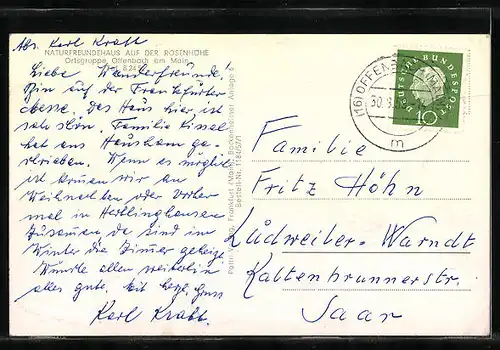 Abs. Karl Kraft
NATURFREUNDEHAUS AUF DER ROSENHÖHE
Ortsgruppe Offenbach am Main
Liebe Wanderfreunde!
Bin auf der Frankfurter
Messe. Das Haus hier ist
sehr schön. Familie Kissel
hat aus Hausham ge-
schrieben. Wenn es möglich
ist können wir an
Weihnachten oder vorher
mal in Hertlinghausen
zusammen da sind im
Winter die Zimmer geheizt.
Wünsche allen weiterhin
alles gute. Mit herzl. Gruss
Karl Kraft.
Frankfurt (Main), Beckenheimer Anlage
Bestell-Nr. 1184/5/71
(16) OFFENB
30.8.59
m
DEUTSCHE BUNDESPOST
10
Familie
Fritz Höhn
Lùdweiler-Warndt
Kaltenbrunnerstr.
Saar